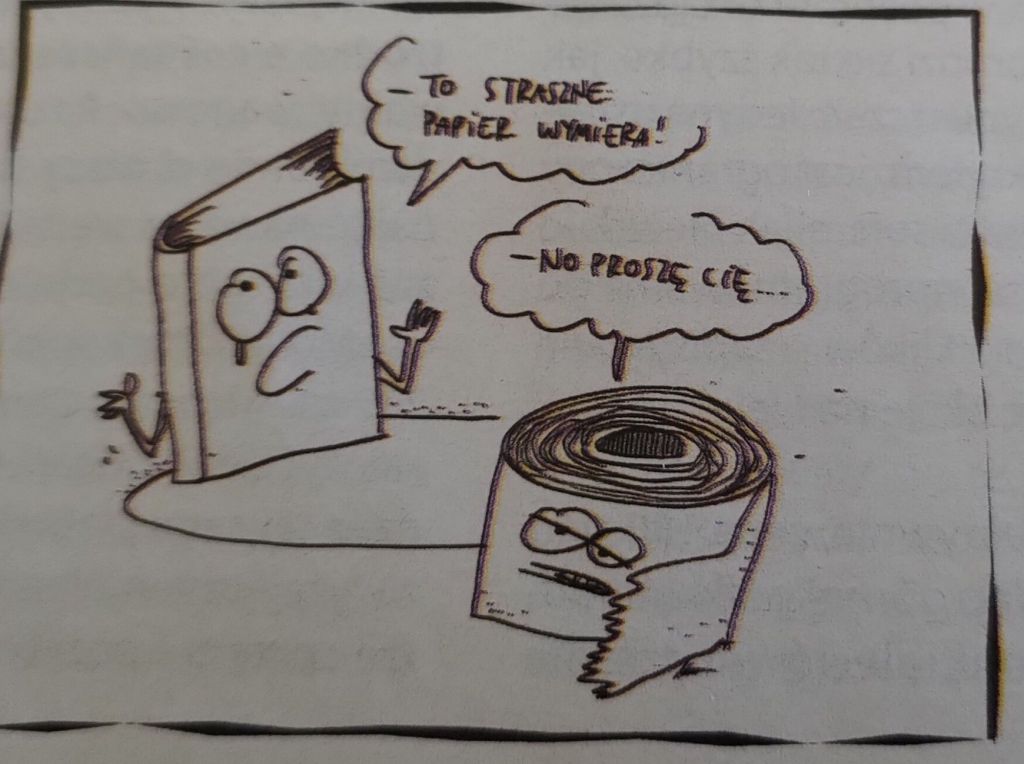 - TO STRASZNE
PAPIER WYMIERA!
- NO PROSZĘ CIĘ...